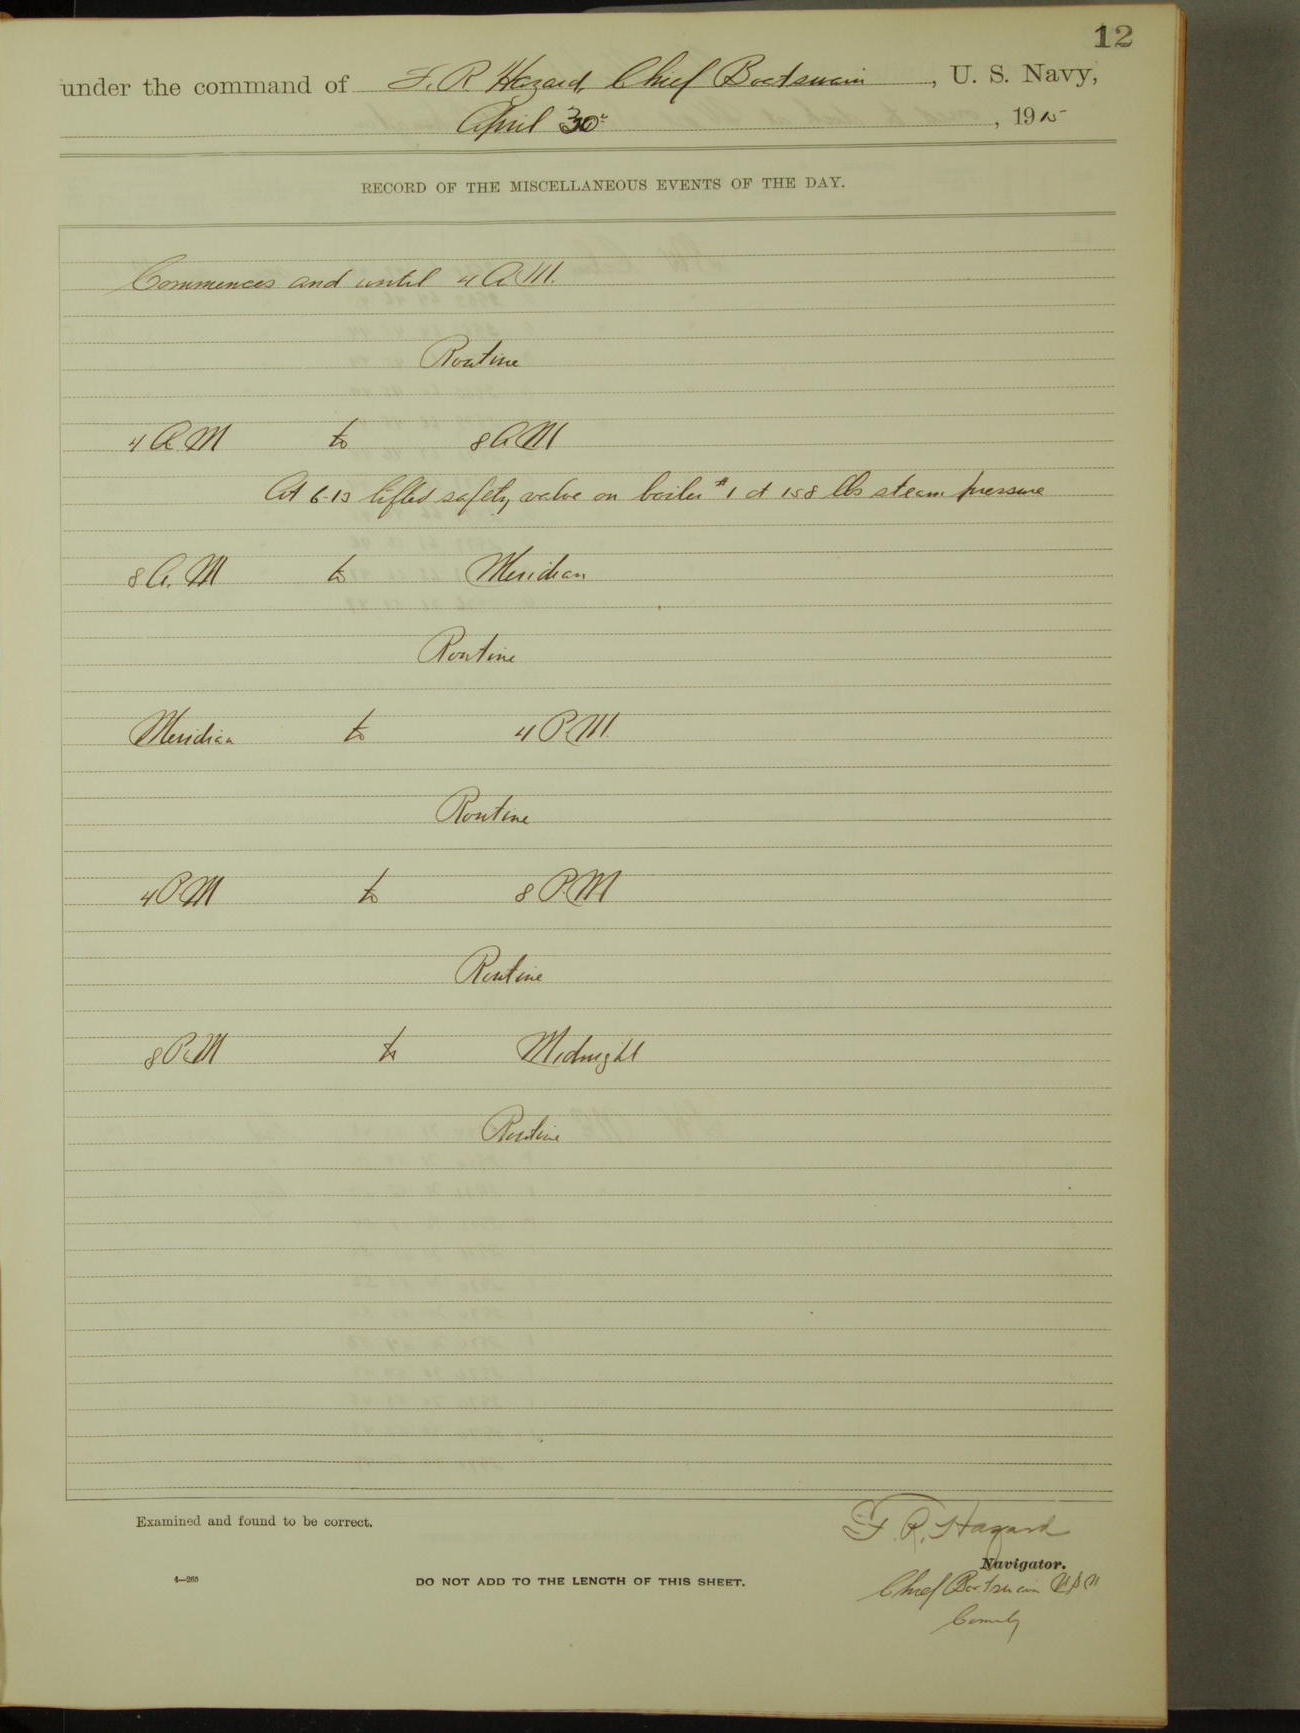 12
under the command of F. R Hazard, Chief Boatswain, U. S. Navy,
April 30, 1915
RECORD OF THE MISCELLANEOUS EVENTS OF THE DAY.
Commences and until 4 A.M.
Routine
4 A M to 8 A M
At 6-15 lifted safety valve on boiler #1 at 158 lbs steam pressure
8 A. M to Meridian
Routine
Meridian to 4 P.M.
Routine
4 P M to 8 P M
Routine
8 P. M to Midnight
Routine
Examined and found to be correct.
F. R. Hazard
Navigator.
4—265
DO NOT ADD TO THE LENGTH OF THIS SHEET.
Chief Boatswain U S N